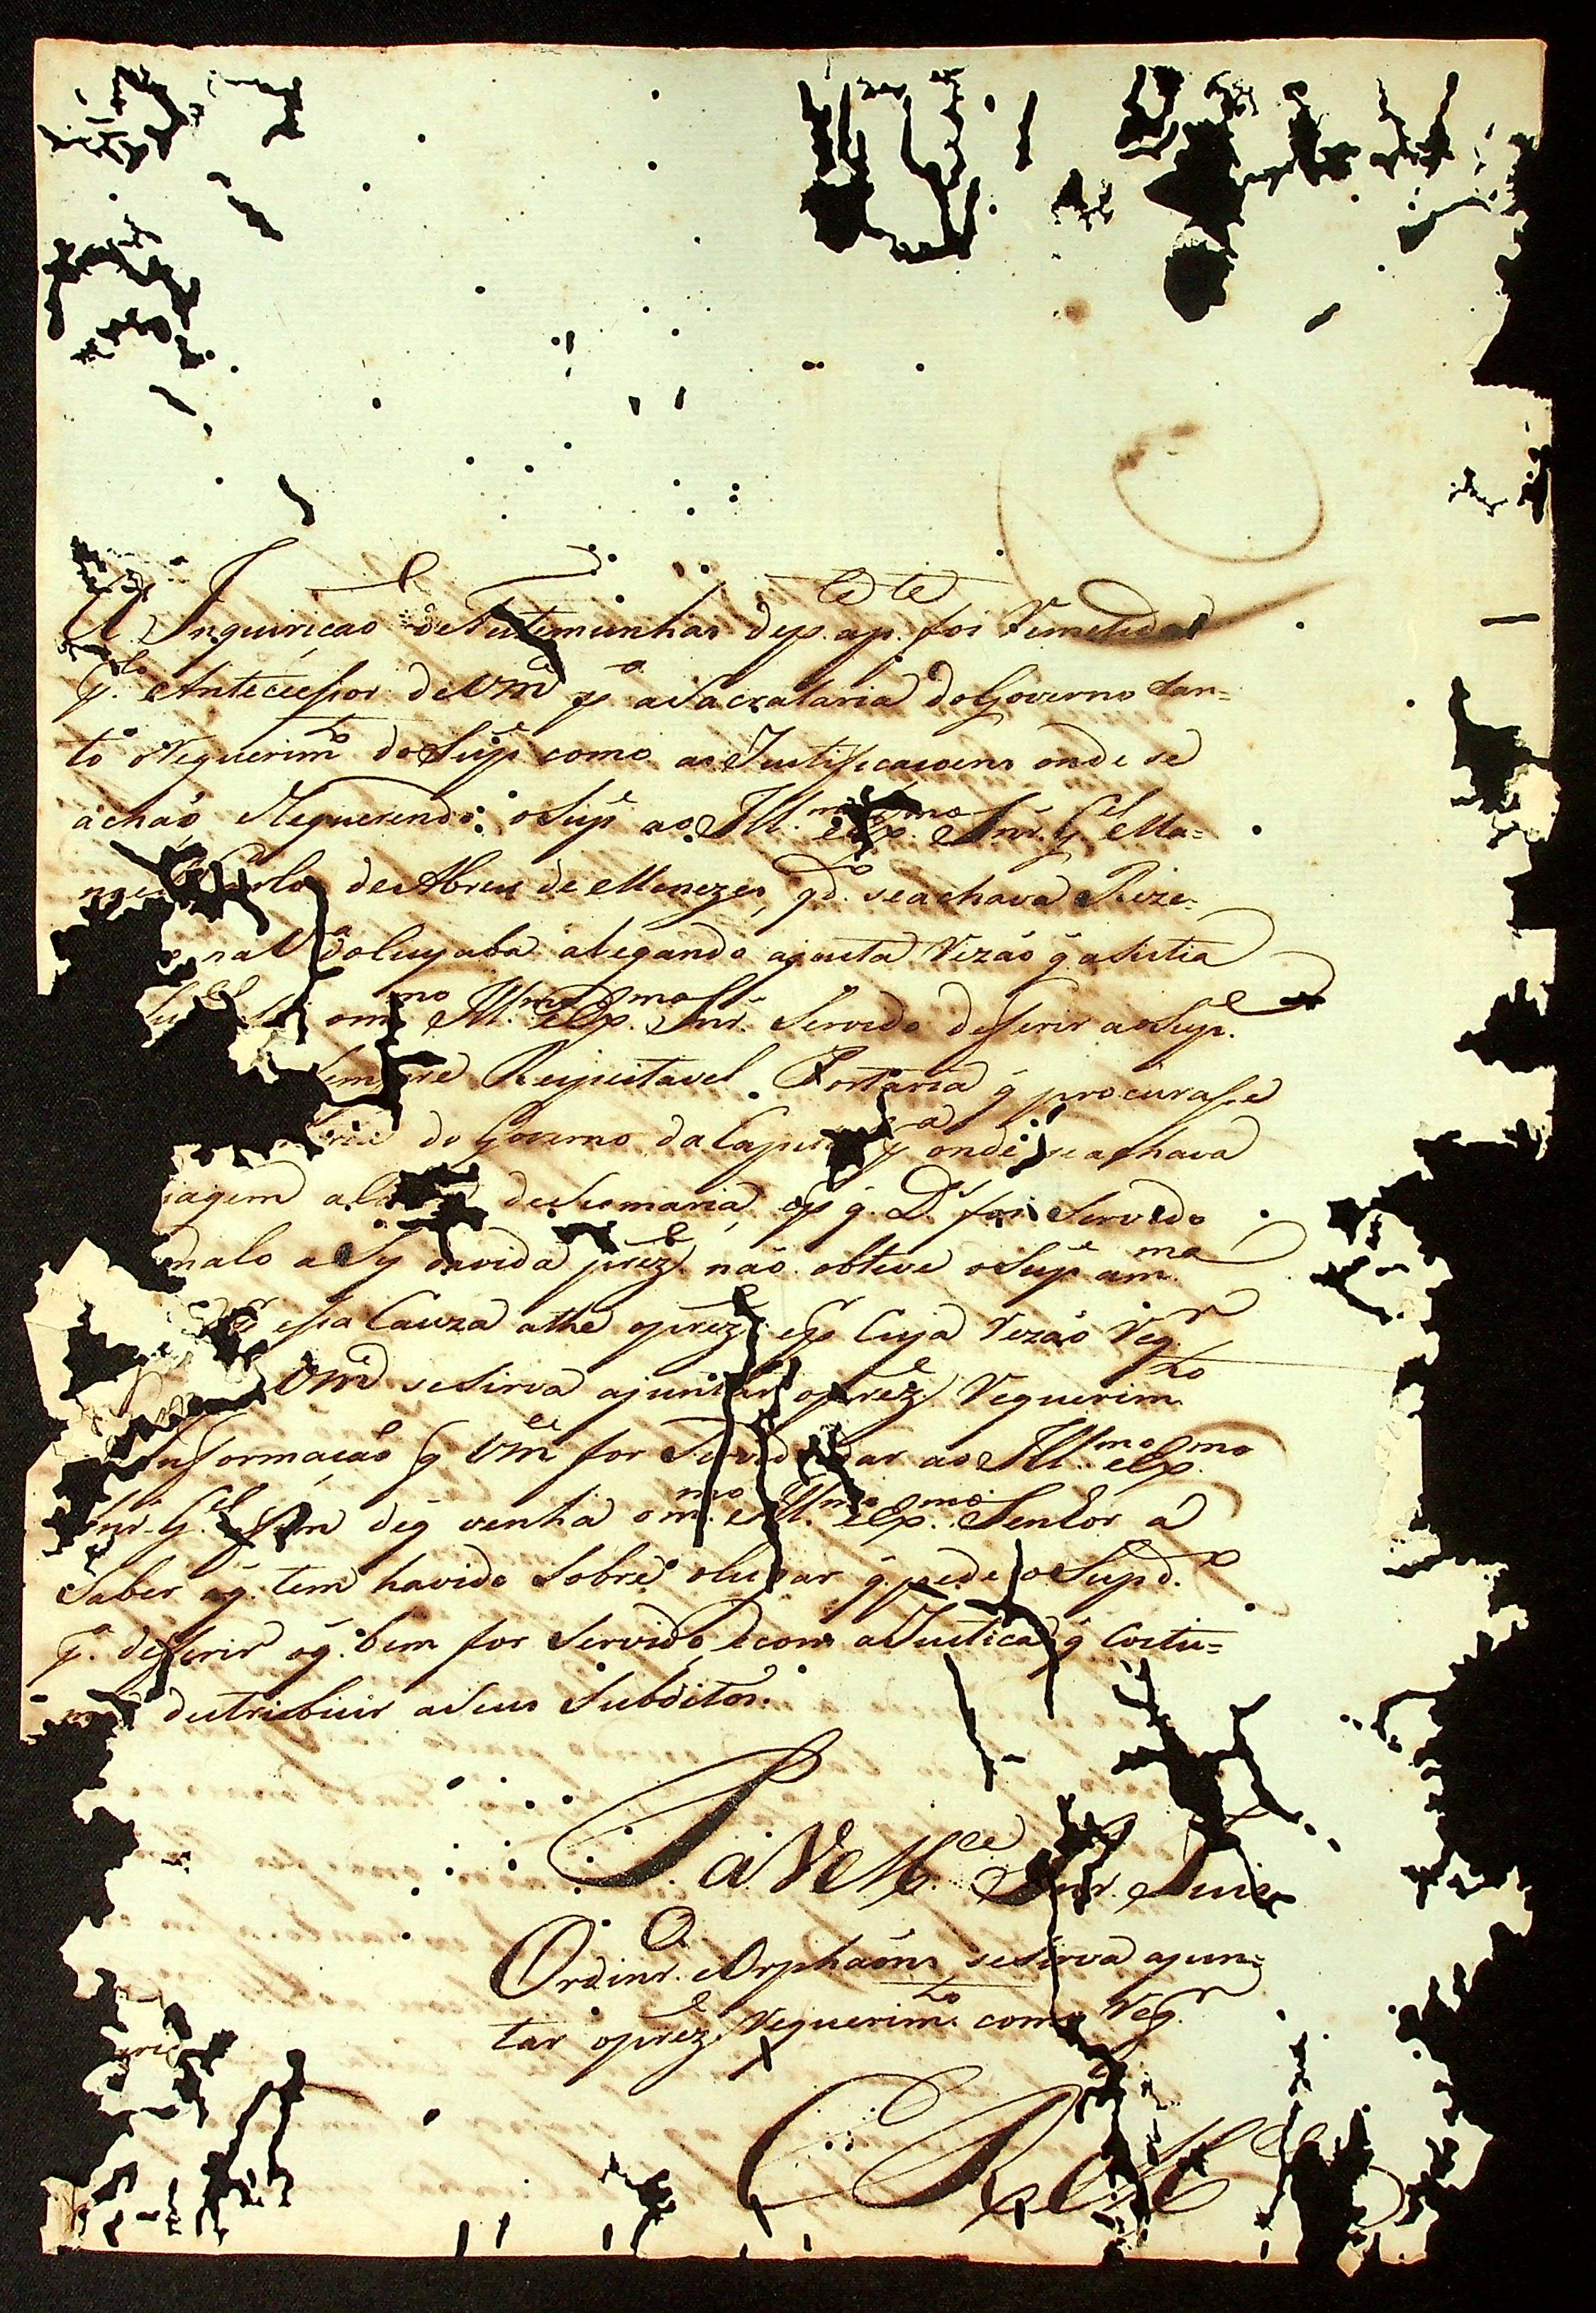 A Inquirição de Testemunhas dep. ap. foi Remetida
p.lo Antecessor de Vm.ce p.a a Sacrataria do Governo tan=
to o Requerim.to do Sup.e como as Justificasoens onde se
áchaõ Requerendo o Sup.e ao Ill.mo e Ex.mo Snr. G.el Ma=
noel Carlos de Abreu de Menezes, q.do se achava Reze-
na V.a do Cuyaba alegando a justa Rezaõ q̃ asistia
foi o m.mo Ill.mo e Ex.mo Snr. Servido deferir ao Sup.e
sempre Respeitavel Portaria q̃ procurase
do Governo da Capital p.a onde se achava
de Sesmaria, e p.r q̃. D.s foi Servido
malo a Sy da vida prez.e naõ obteve o Sup.e a m.ma
esta Cauza athe o prez.e e p.r Cuja Rezaõ Req.r
Vm.ce se sirva ajuntar o prez.e Requerim.to
informaçaõ q̃ Vm.ce for Servido dar ao Ill.mo e Ex.mo
Snr. G.el afim de q̃ venha o m.mo Ill.mo e Ex.mo Senhor a
Saber o q̃ tem havido Sobre o lugar q̃. pede o Sup.e
p.a deferir o q̃. bem for Servido, e com a Justica q̃ Custu=
ma destribuir a Seus Subditos.
P. a V. M.ce Snr. Juis
Ordinr.o e Orphaõns se sirva ajun=
tar o prez.e Requerim.to como Req.r
E R M.ce